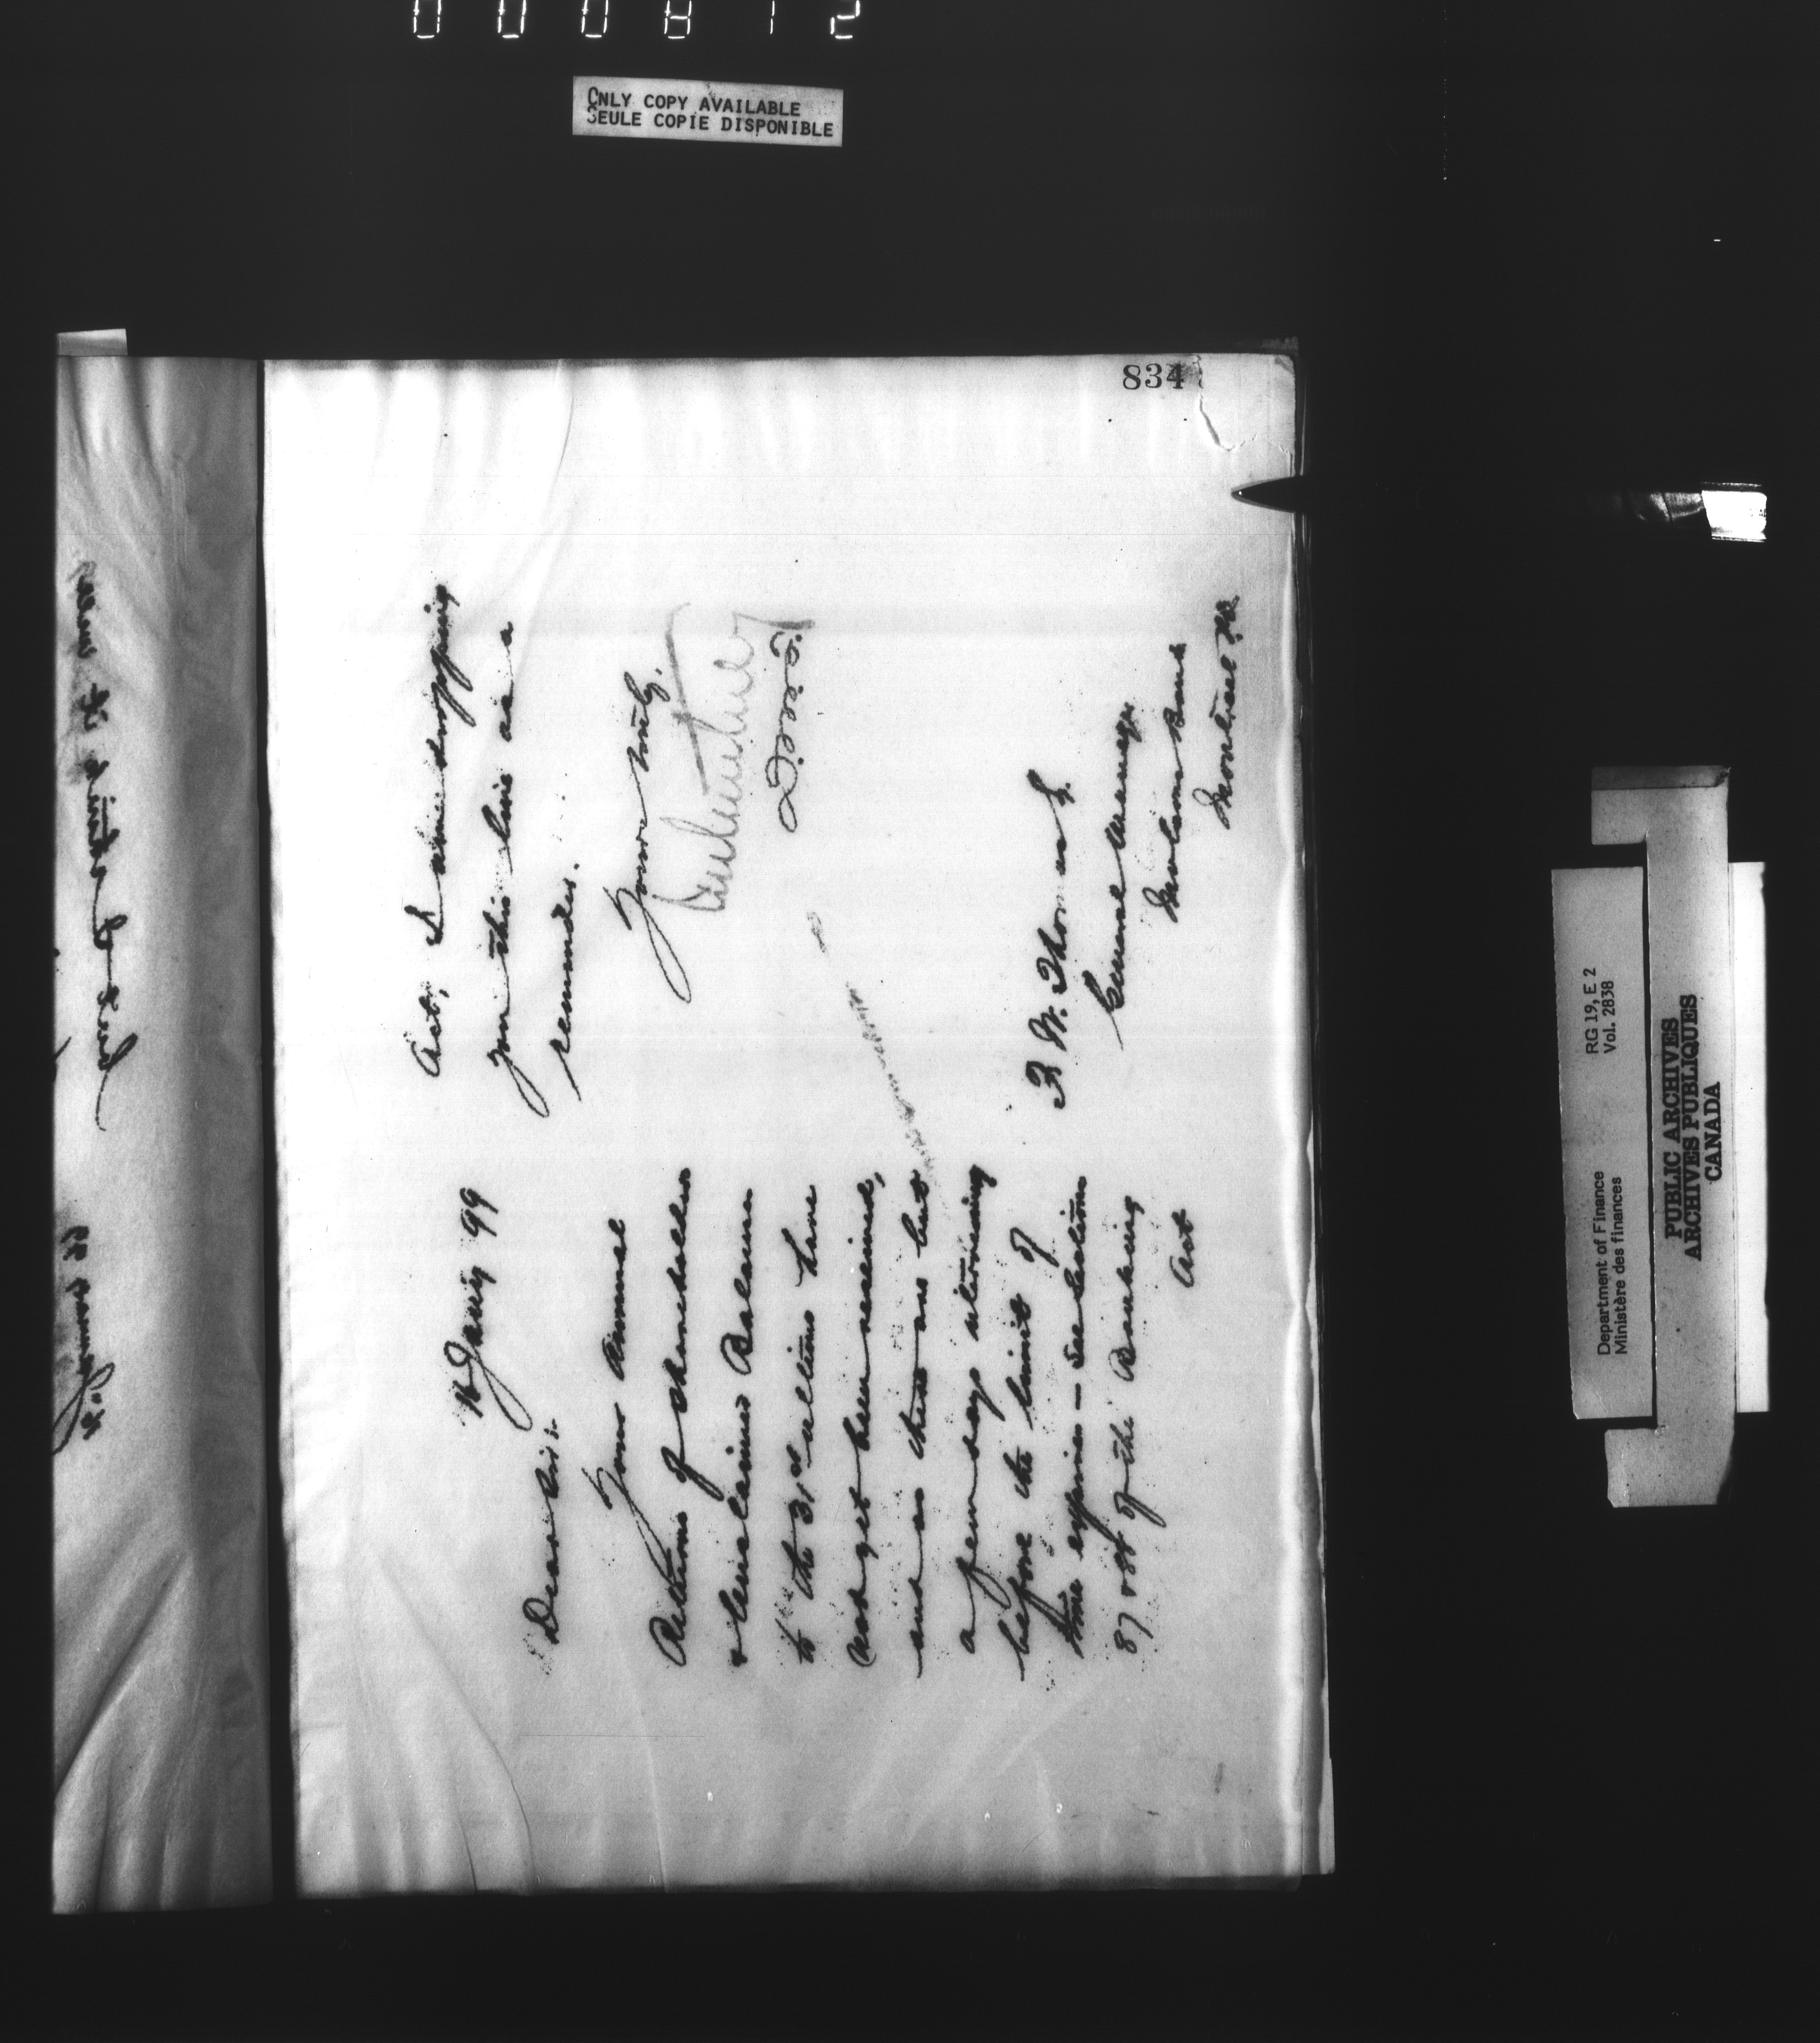 000812
ONLY COPY AVAILABLE
SEULE COPIE DISPONIBLE
834
16 Jany 99
Dear Sir:
Your Annual
Returns of Shareholders
& Unclaimed Balances
to the 31st ultimo have
not yet been received,
and as there are but
a few days intervening
before the limit of
time expires – see sections
87 & 88 of the Banking
Act
Act, I am dropping
you this line as a
reminder.
Yours truly,
D.M.F.
F. W. Thomas
General Manager
Molsons Bank
Montreal PQ
Department of Finance
Ministère des finances
RG 19, E 2
Vol. 2838
PUBLIC ARCHIVES
ARCHIVES PUBLIQUES
CANADA